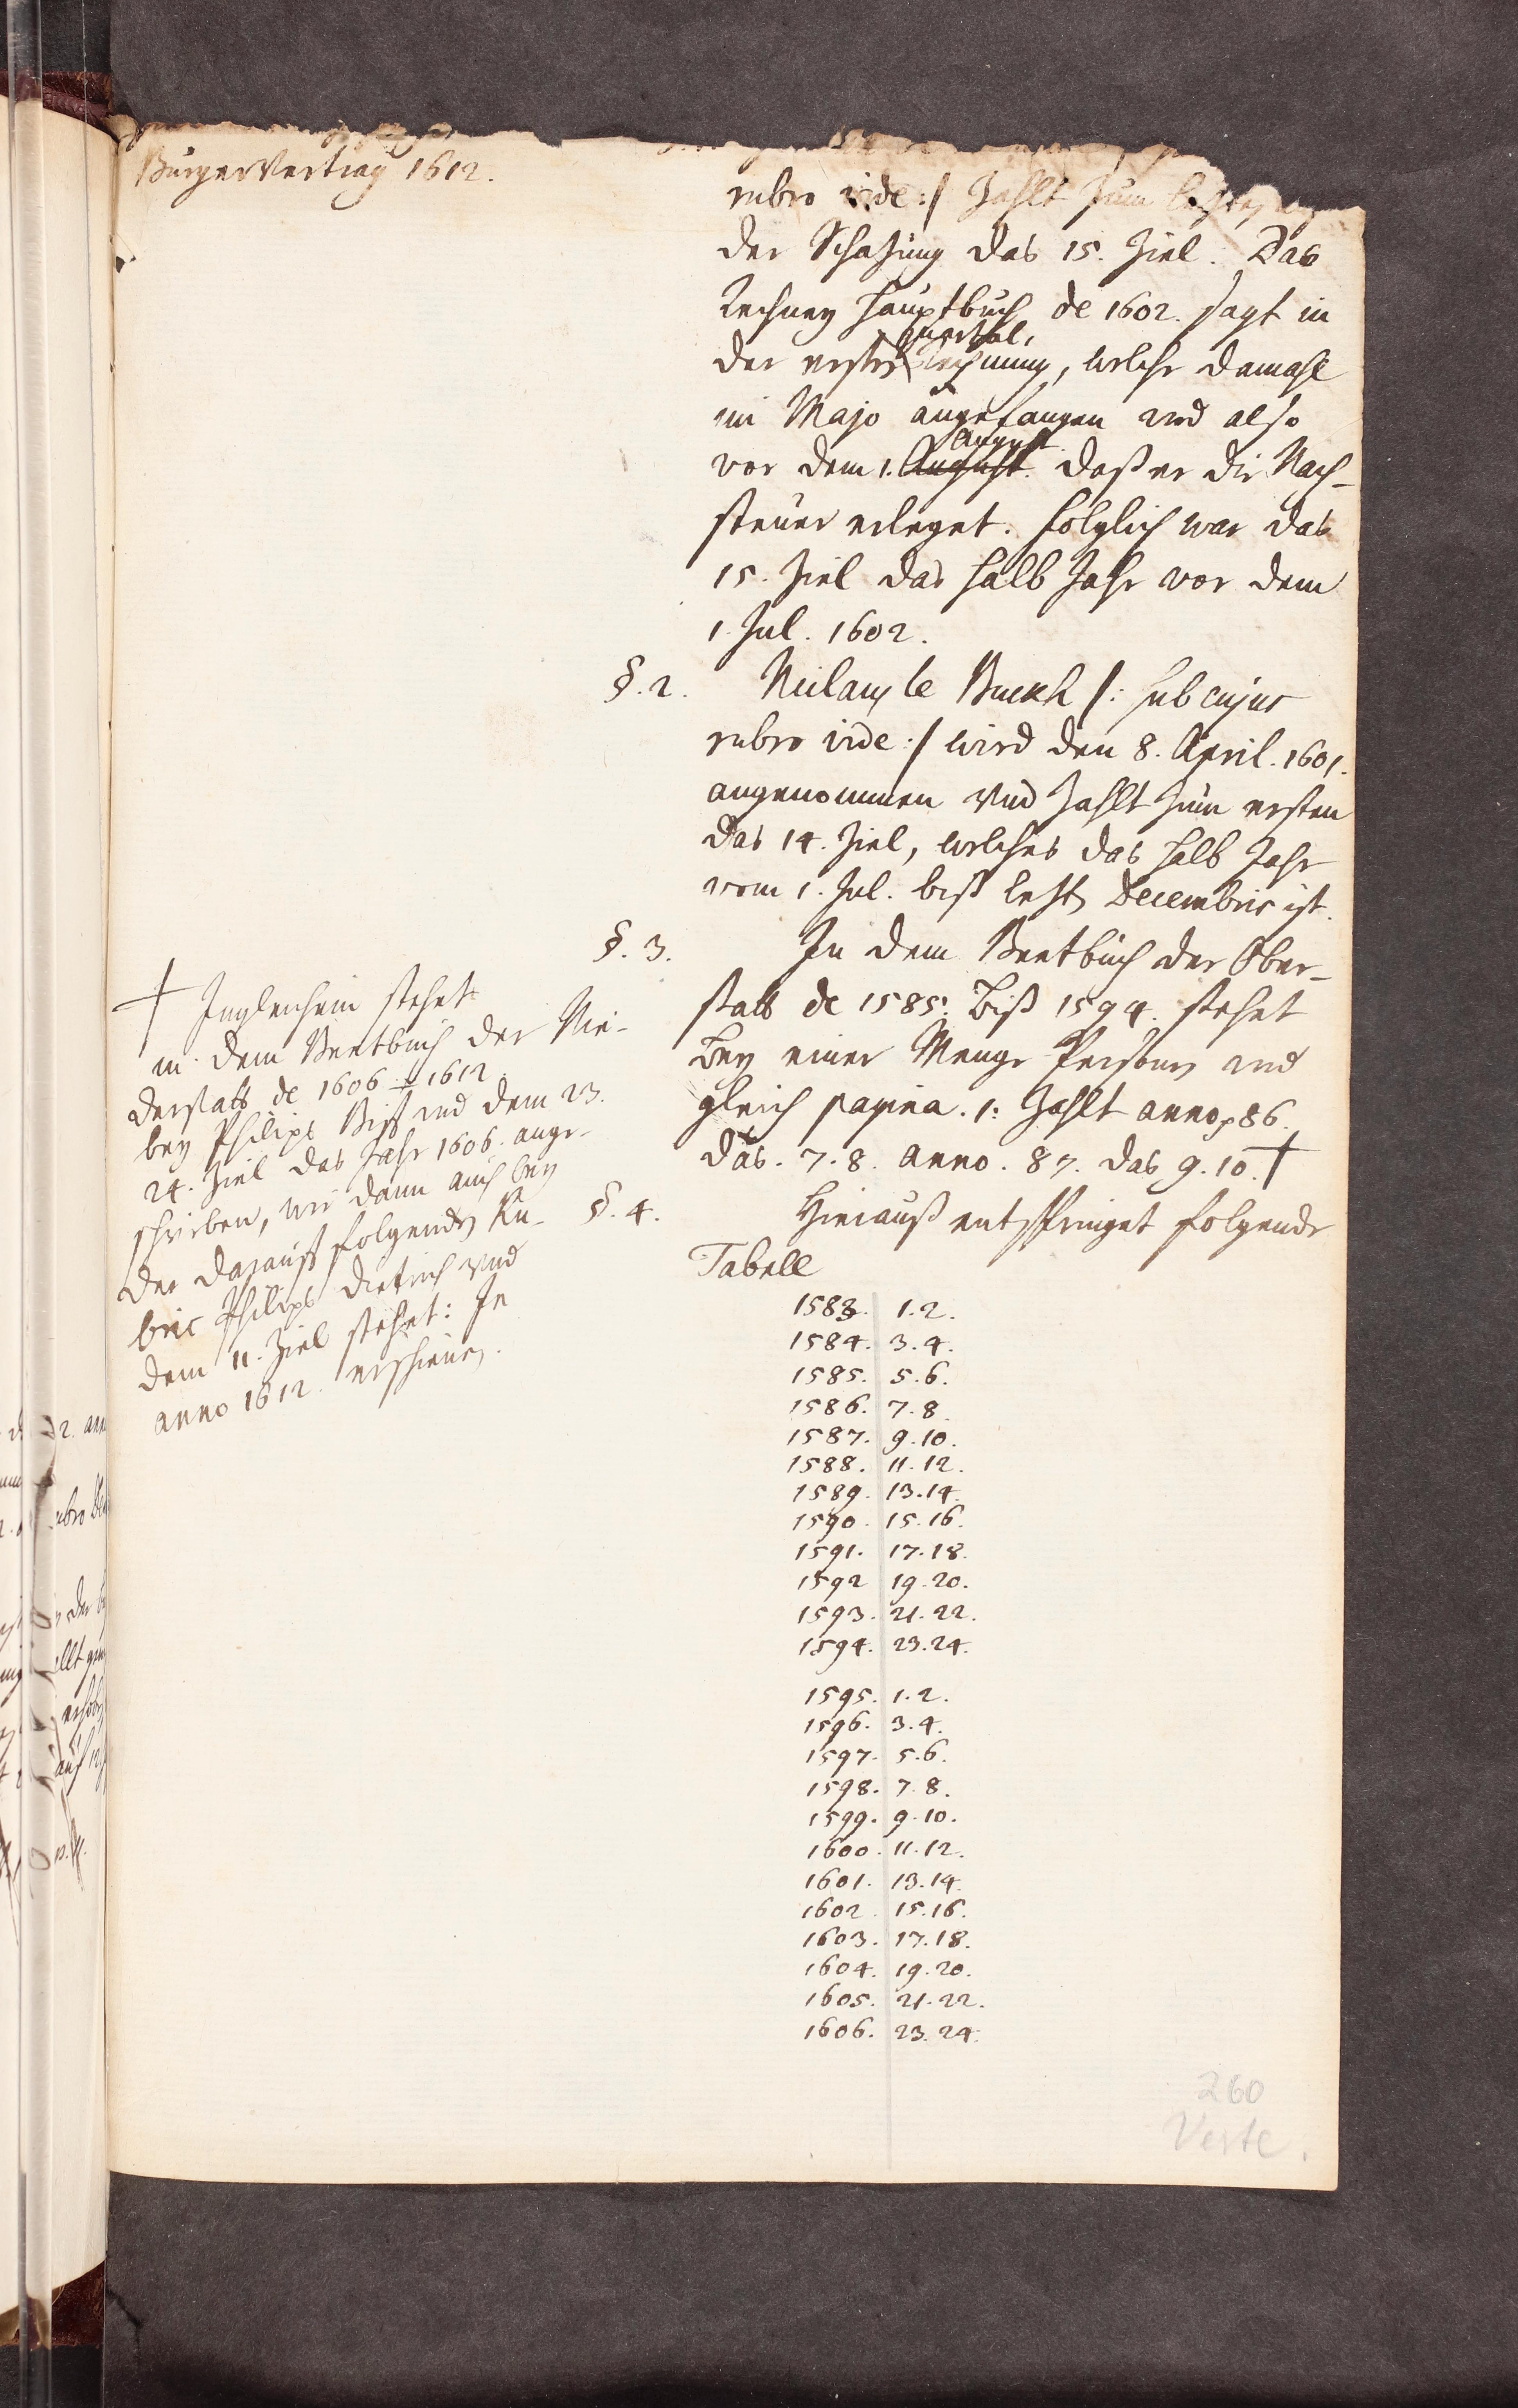 Burger Vertrag 1612.
rubro vide :/ Zahlt zum letzten
der Schazung das 15. Ziel. Das
Rechney Hauptbuch de 1602. sagt in
quartal,
der ersten Rechnung, welche damahls
im Majo angefangen und also
August
vor dem 1. August. daß er die Nach-
steuer erleget. folglich war das
15. Ziel das halb Jahr vor dem
1. Jul. 1602.
§. 2. Nielauß le Buckh /: sub cujus
rubro vide :/ wird den 8. April. 1601.
angenommen und Zahlt zum ersten
das 14. Ziel, welches das halb Jahr
vom 1. Jul. biß letzt Decembris ist.
§. 3. In dem Beetbuch der Ober-
statt de 1585. Biß 1594. stehet
bey einer Menge Persohnen und
gleich pagina. 1: Zahlt anno 86.
das. 7. 8. anno. 87. das 9. 10. †
† Ingleichem stehet
in dem Beetbuch der Nie-
derstatt de 1606 - 1612
bey Philips Biß und dem 23.
24. Ziel das Jahr 1606. ange-
schrieben, wie dann auch bey
der darauff folgenden Ru-
bric Philips Dietrich und
dem 11. Ziel stehet: In
anno 1612. erschienen.
§. 4. Hierauß entspringet folgende
Tabell
1583. 1. 2.
1584. 3. 4.
1585. 5. 6.
1586. 7. 8.
1587. 9. 10.
1588. 11. 12.
1589. 13. 14.
1590. 15. 16.
1591. 17. 18.
1592 19. 20.
1593. 21. 22.
1594. 23. 24.
1595. 1. 2.
1596. 3. 4.
1597. 5. 6.
1598. 7. 8.
1599. 9. 10.
1600. 11. 12.
1601. 13. 14.
1602. 15. 16.
1603. 17. 18.
1604. 19. 20.
1605. 21. 22.
1606. 23. 24.
260
Verte.